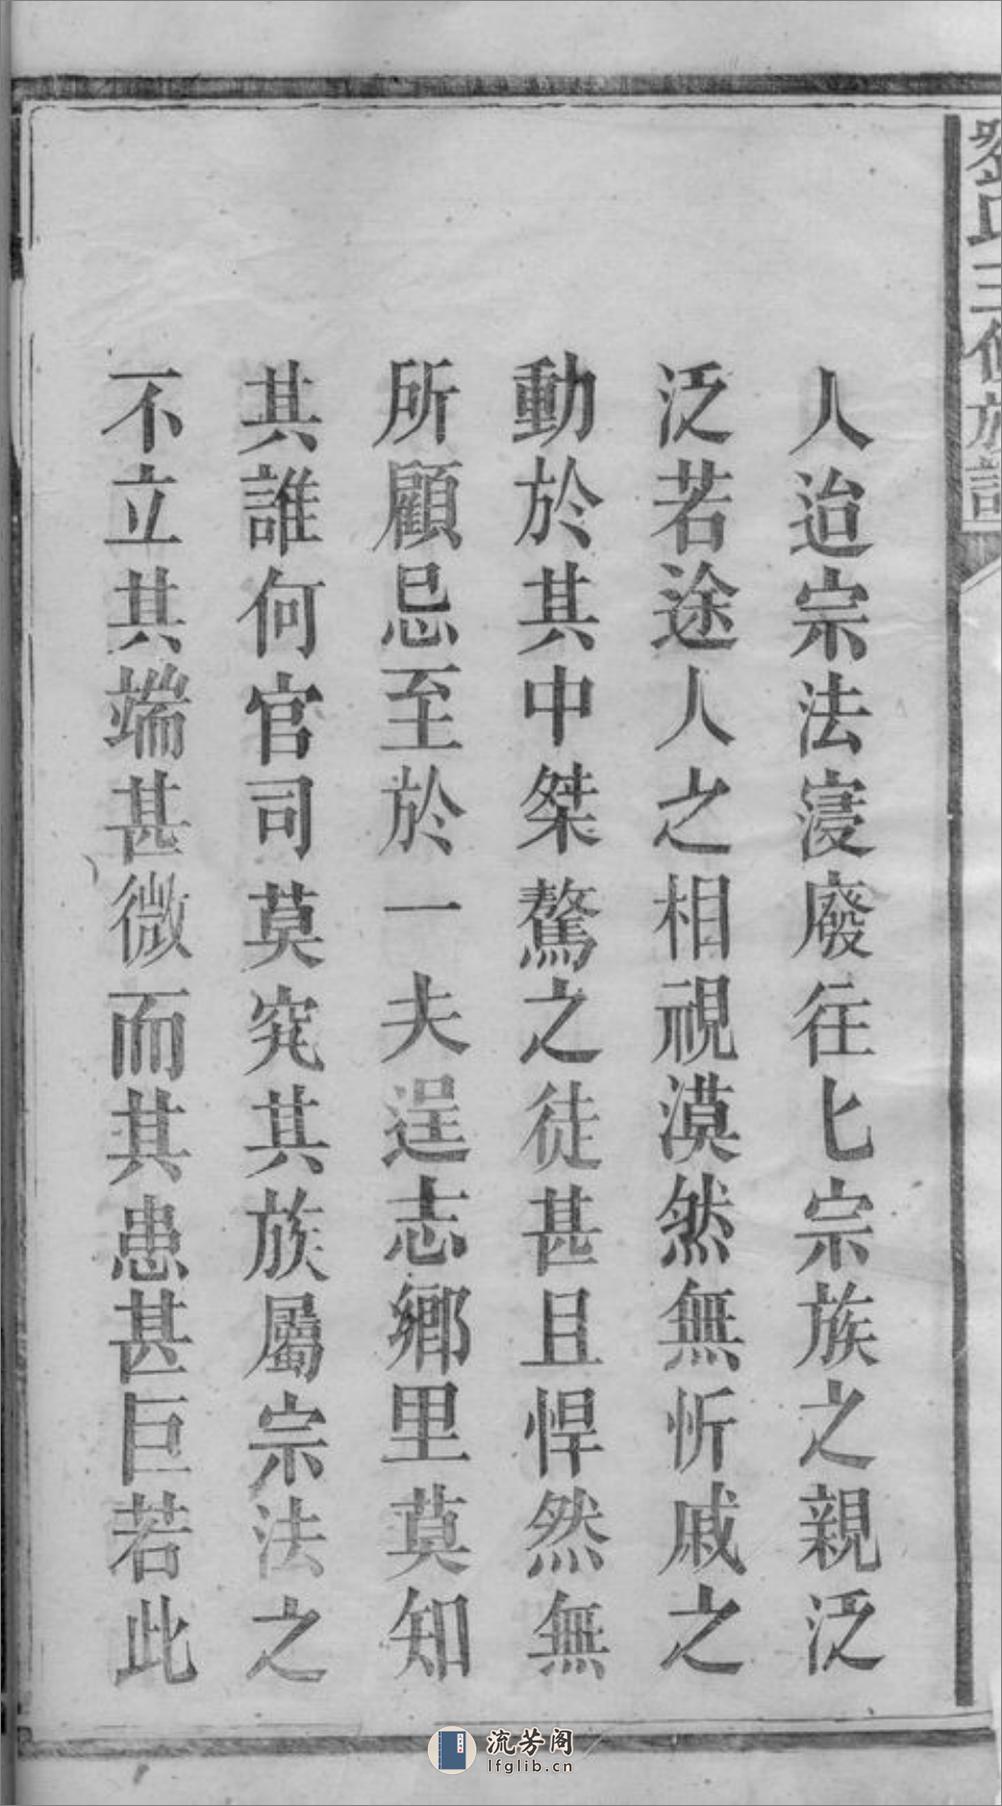 劉氏三修族譜
人迨宗法寖廢往匕宗族之親泛
泛若途人之相視漠然無忻戚之
動於其中桀驁之徒甚且悍然無
所顧忌至於一夫逞志鄉里莫知
其誰何官司莫究其族屬宗法之
不立其端甚微而其患甚巨若此
流芳阁
lfglib.cn